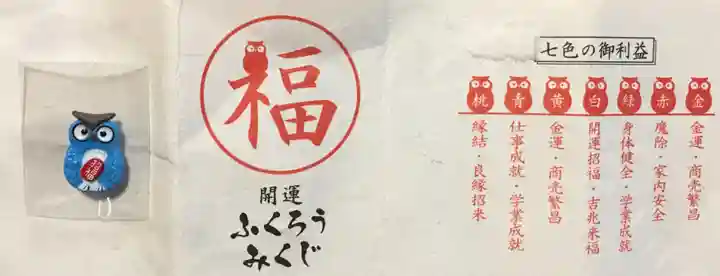 福
開運
ふくろう
みくじ
七色の御利益
金 金運・商売繁昌
赤 魔除・家内安全
緑 身体健全・学業成就
白 開運招福・吉兆来福
黄 金運・商売繁昌
青 仕事成就・学業成就
桃 縁結・良縁招来